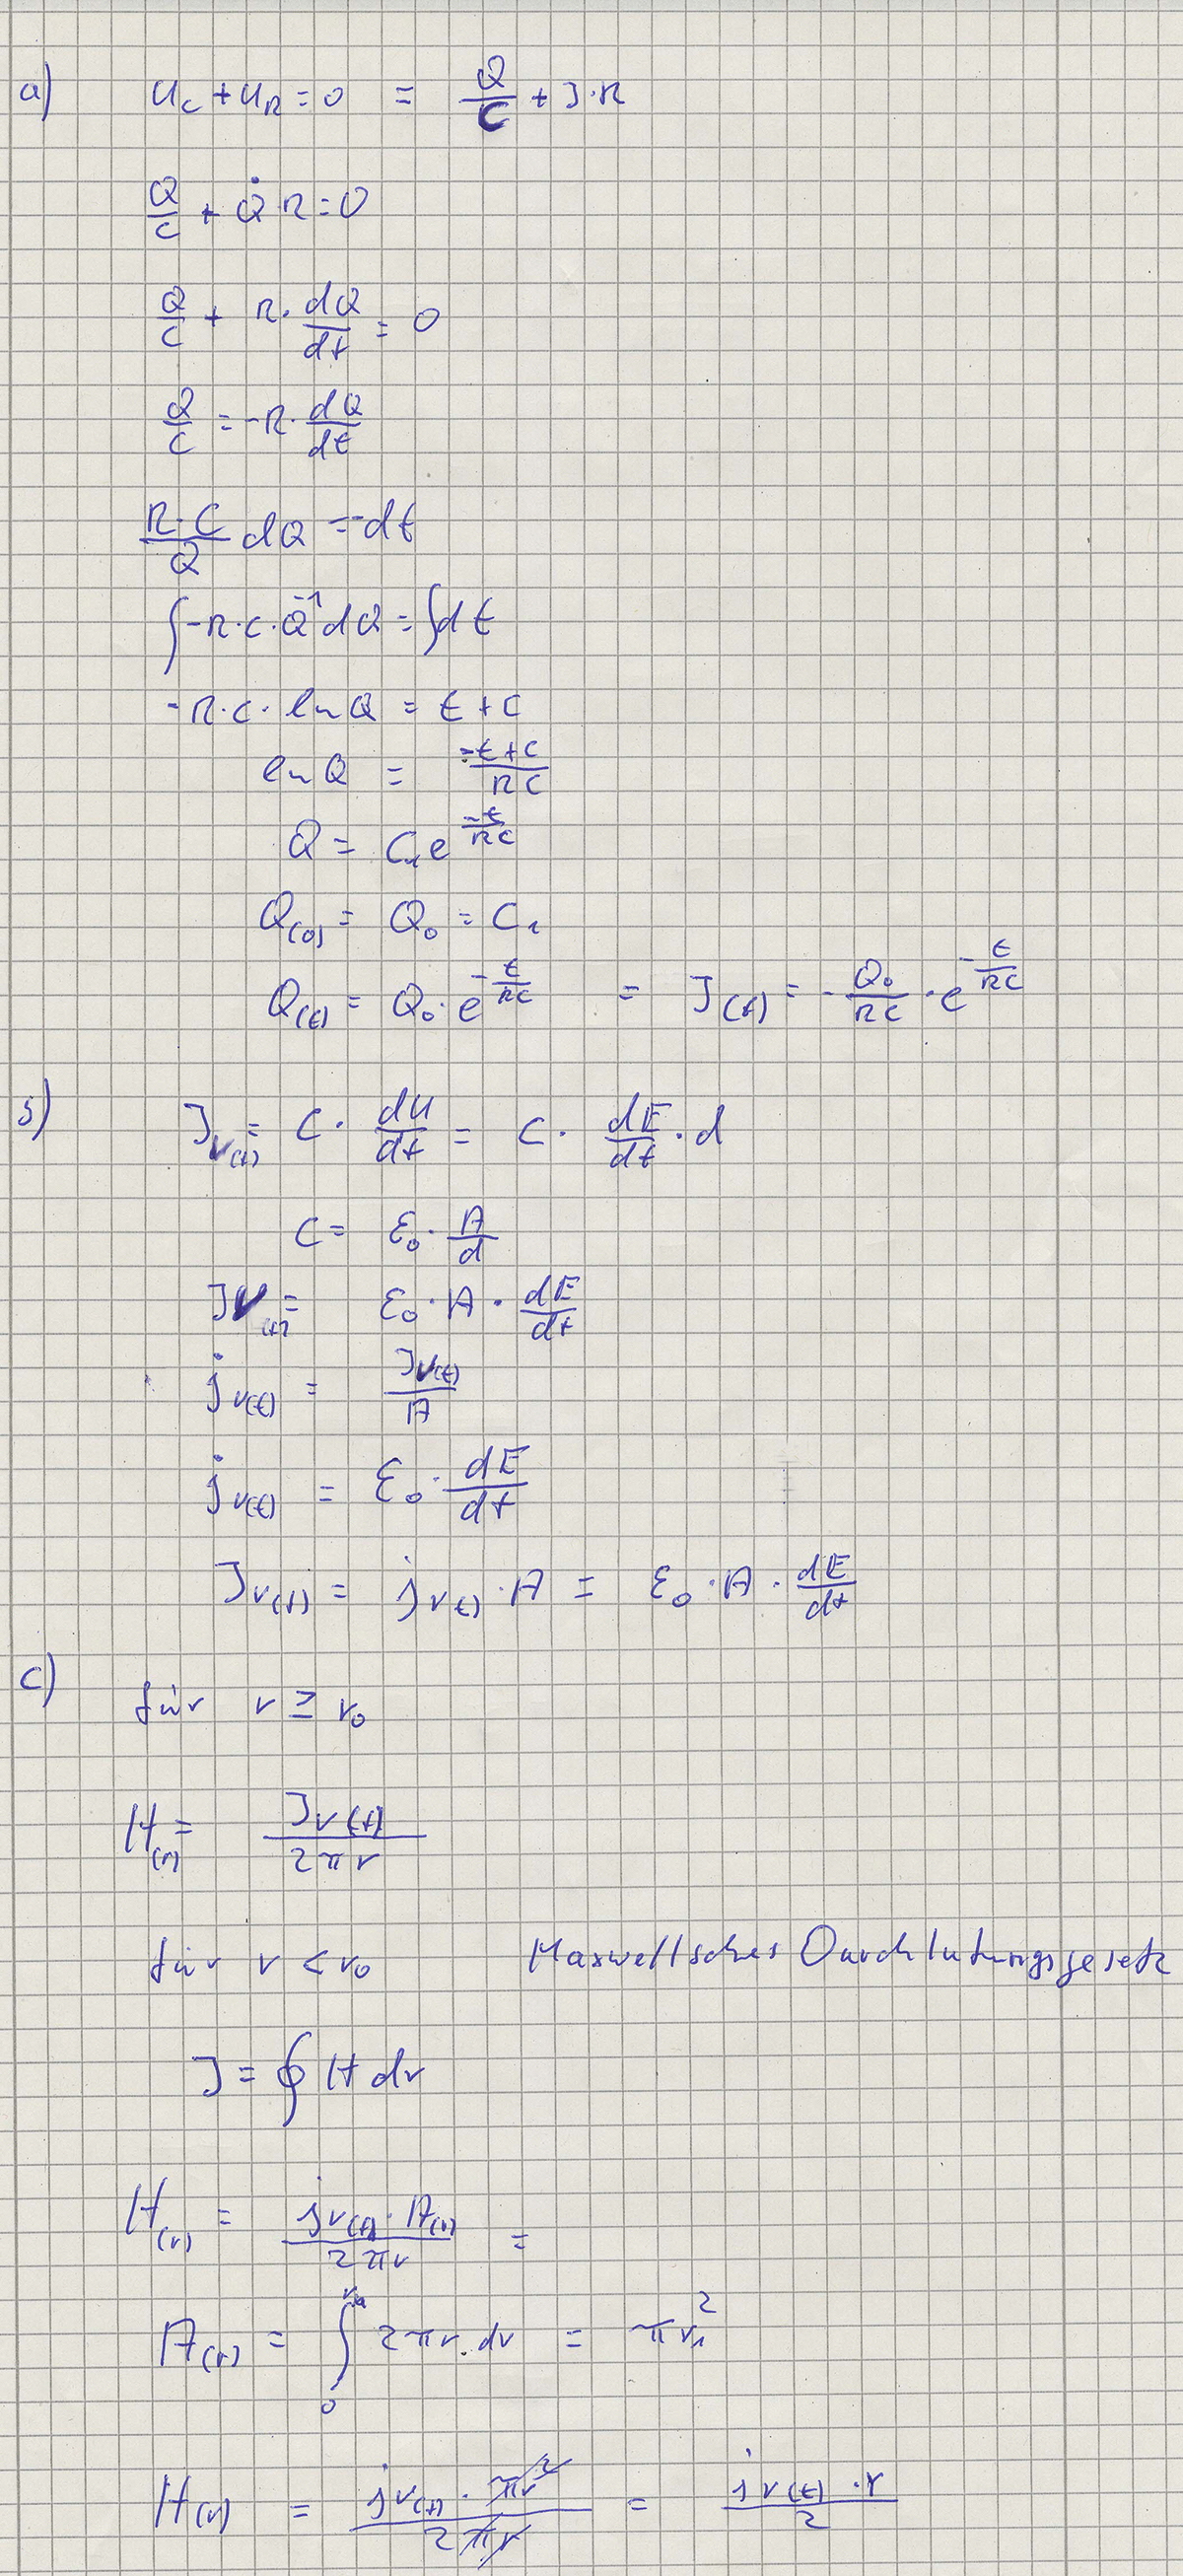 a) U_C + U_R = 0 = Q/C + J·R
Q/C + Q̇ R = 0
Q/C + R· dQ/dt = 0
Q/C = -R· dQ/dt
R·C/Q dQ = -dt
∫-R·C·Q⁻¹ dQ = ∫dt
-R·C· ln Q = t + C
ln Q = -t+C/RC
Q = C₁e^(-t/RC)
Q(0) = Q₀ = C₁
Q(t) = Q₀·e^(-t/RC) = J(t) = -Q₀/RC · e^(-t/RC)
b) J_V(t) = C· dU/dt = C· dE/dt · d
C = ε₀· A/d
J_V(t) = ε₀·A· dE/dt
j_V(t) = J_V(t)/A
j_V(t) = ε₀· dE/dt
J_V(t) = j_V(t)·A = ε₀·A· dE/dt
c) für r ≥ r₀
H(r) = J_V(t)/2πr
für r < r₀ Maxwellsches Durchlutungsgesetz
J = ∮ H dr
H(r) = j_V(t)·A(r)/2πr =
A(r) = ∫₀^r₁ 2πr·dr = πr₁²
H(r) = j_V(t)·πr²/2πr = j_V(t)·r/2